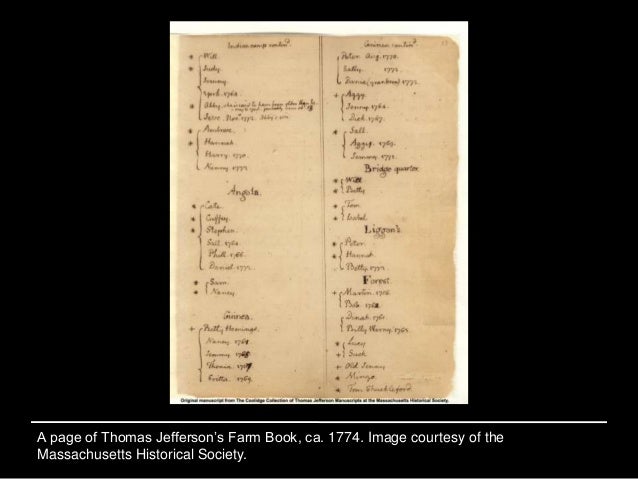 Indian camp contind.
Will.
Judy.
Jenny.
York. 1762.
Abby.
Jesse. Nov. 1772. Abby's son.
Ambrose.
Hannah
Harry. 1770.
Nanny. 1772.
Angola.
Cate.
Cuffey.
Stephen.
Sall. 1760.
Phill. 1766.
Daniel. 1772.
Sam.
Nancy.
Guinea.
Betty Hemings.
Nancy. 1761.
Jemmy
Thenia. 1767.
Critta. 1769.
Guinea contind.
Peter. Aug. 1770.
Sally. 1773.
1772.
Aggy.
Jenny. 1764.
Dick. 1767.
Sall.
Aggy. 1769.
1772.
Bridge quarter
Will
Betty
Tom.
Isabel
Liggon's
Peter.
Hannah
Betty. 1772.
Forest.
Martin.
Bob.
Dinah. 1761.
Billy Warny. 1763.
Lucy
Suck
Old Jenny
Mingo.
Tom Shackleford.
Original manuscript from The Coolidge Collection of Thomas Jefferson Manuscripts at the Massachusetts Historical Society.
A page of Thomas Jefferson's Farm Book, ca. 1774. Image courtesy of the
Massachusetts Historical Society.